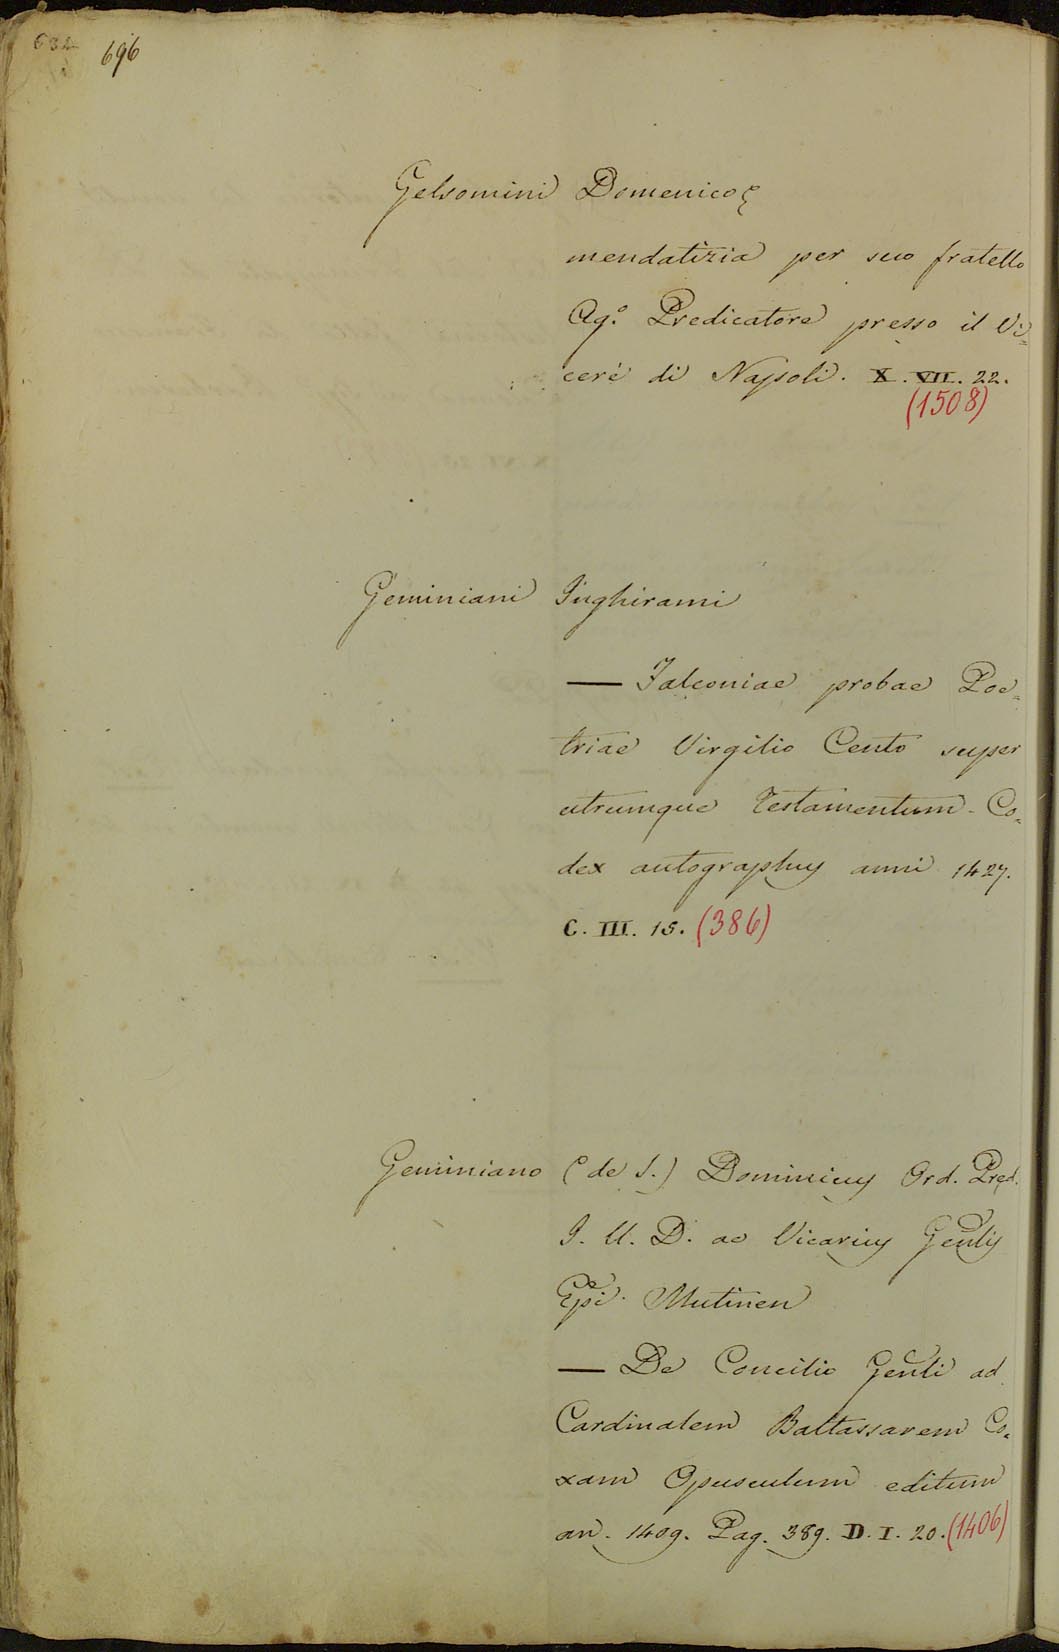 632 696
Gelsomini Domenico
mendatizia per suo fratello
Ag.º Predicatore presso il Vi=
cerè di Napoli. X. VII. 22.
(1508)
Geminiani Inghirami
— Falconiae probae Poe=
triae Virgilio Cento super
utrumque Testamentum - Co=
dex autographus anni 1427.
C. III. 15. (386)
Geminiano (de S.) Dominicus Ord. Pred.
I. U. D. ac Vicarius Genlis
Epi. Mutinen
— De Concilio Genli ad
Cardinalem Baltassarem Co=
xam Opusculum editum
an. 1409. Pag. 389. D. I. 20. (1406)